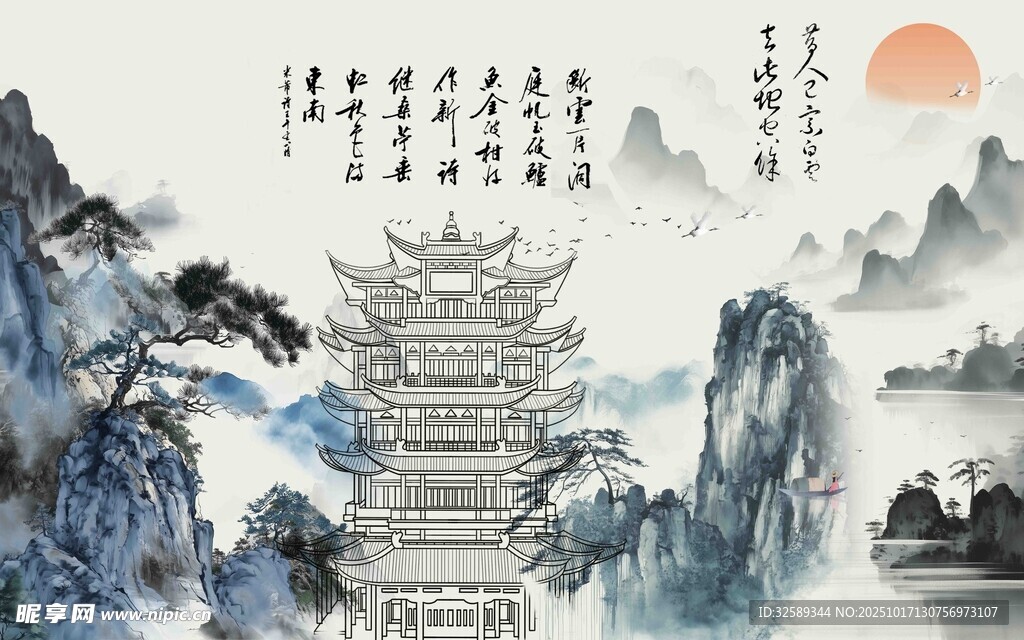 昔人已乘白雲
去此地空餘
斷雲一片洞
庭帆玉破鱸
魚金破柑好
作新詩
継桑苧垂
虹秋色满
東南
米芾詩
昵享网 www.nipic.cn
ID:32589344 NO:20251017130756973107